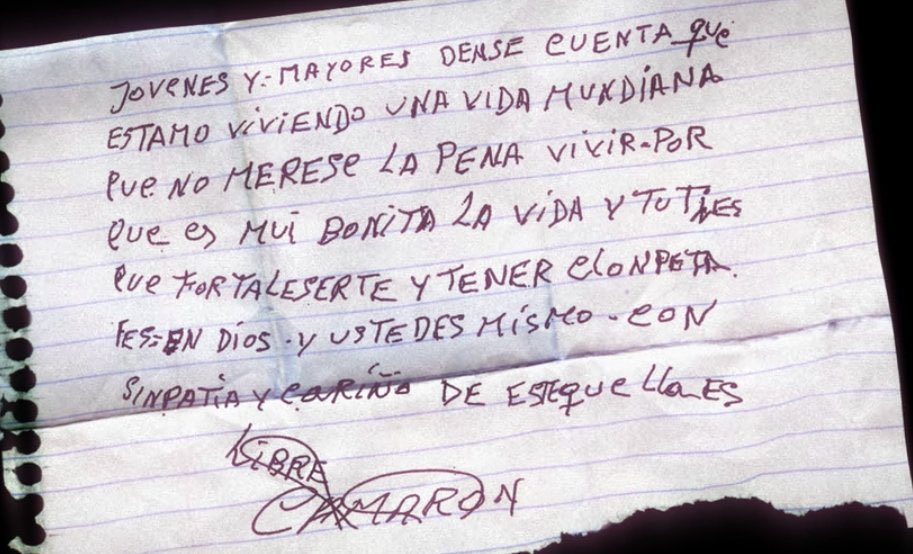 JOVENES Y-MAYORES DENSE CUENTA que
ESTAMO ViViENDO UNA VIDA MUNDiANA
que NO MERESe LA PENA VIVIR-POR
que es MUi BONiTA LA ViDA Y TU TiNES
que FORTALESERTE Y TENER CLONPETA.
FES-EN DiOS-Y USTEDES MiSMO-CON
SiNPATiA Y CARiÑO DE ESTE que LLA ES
LiBRE
CAMARON